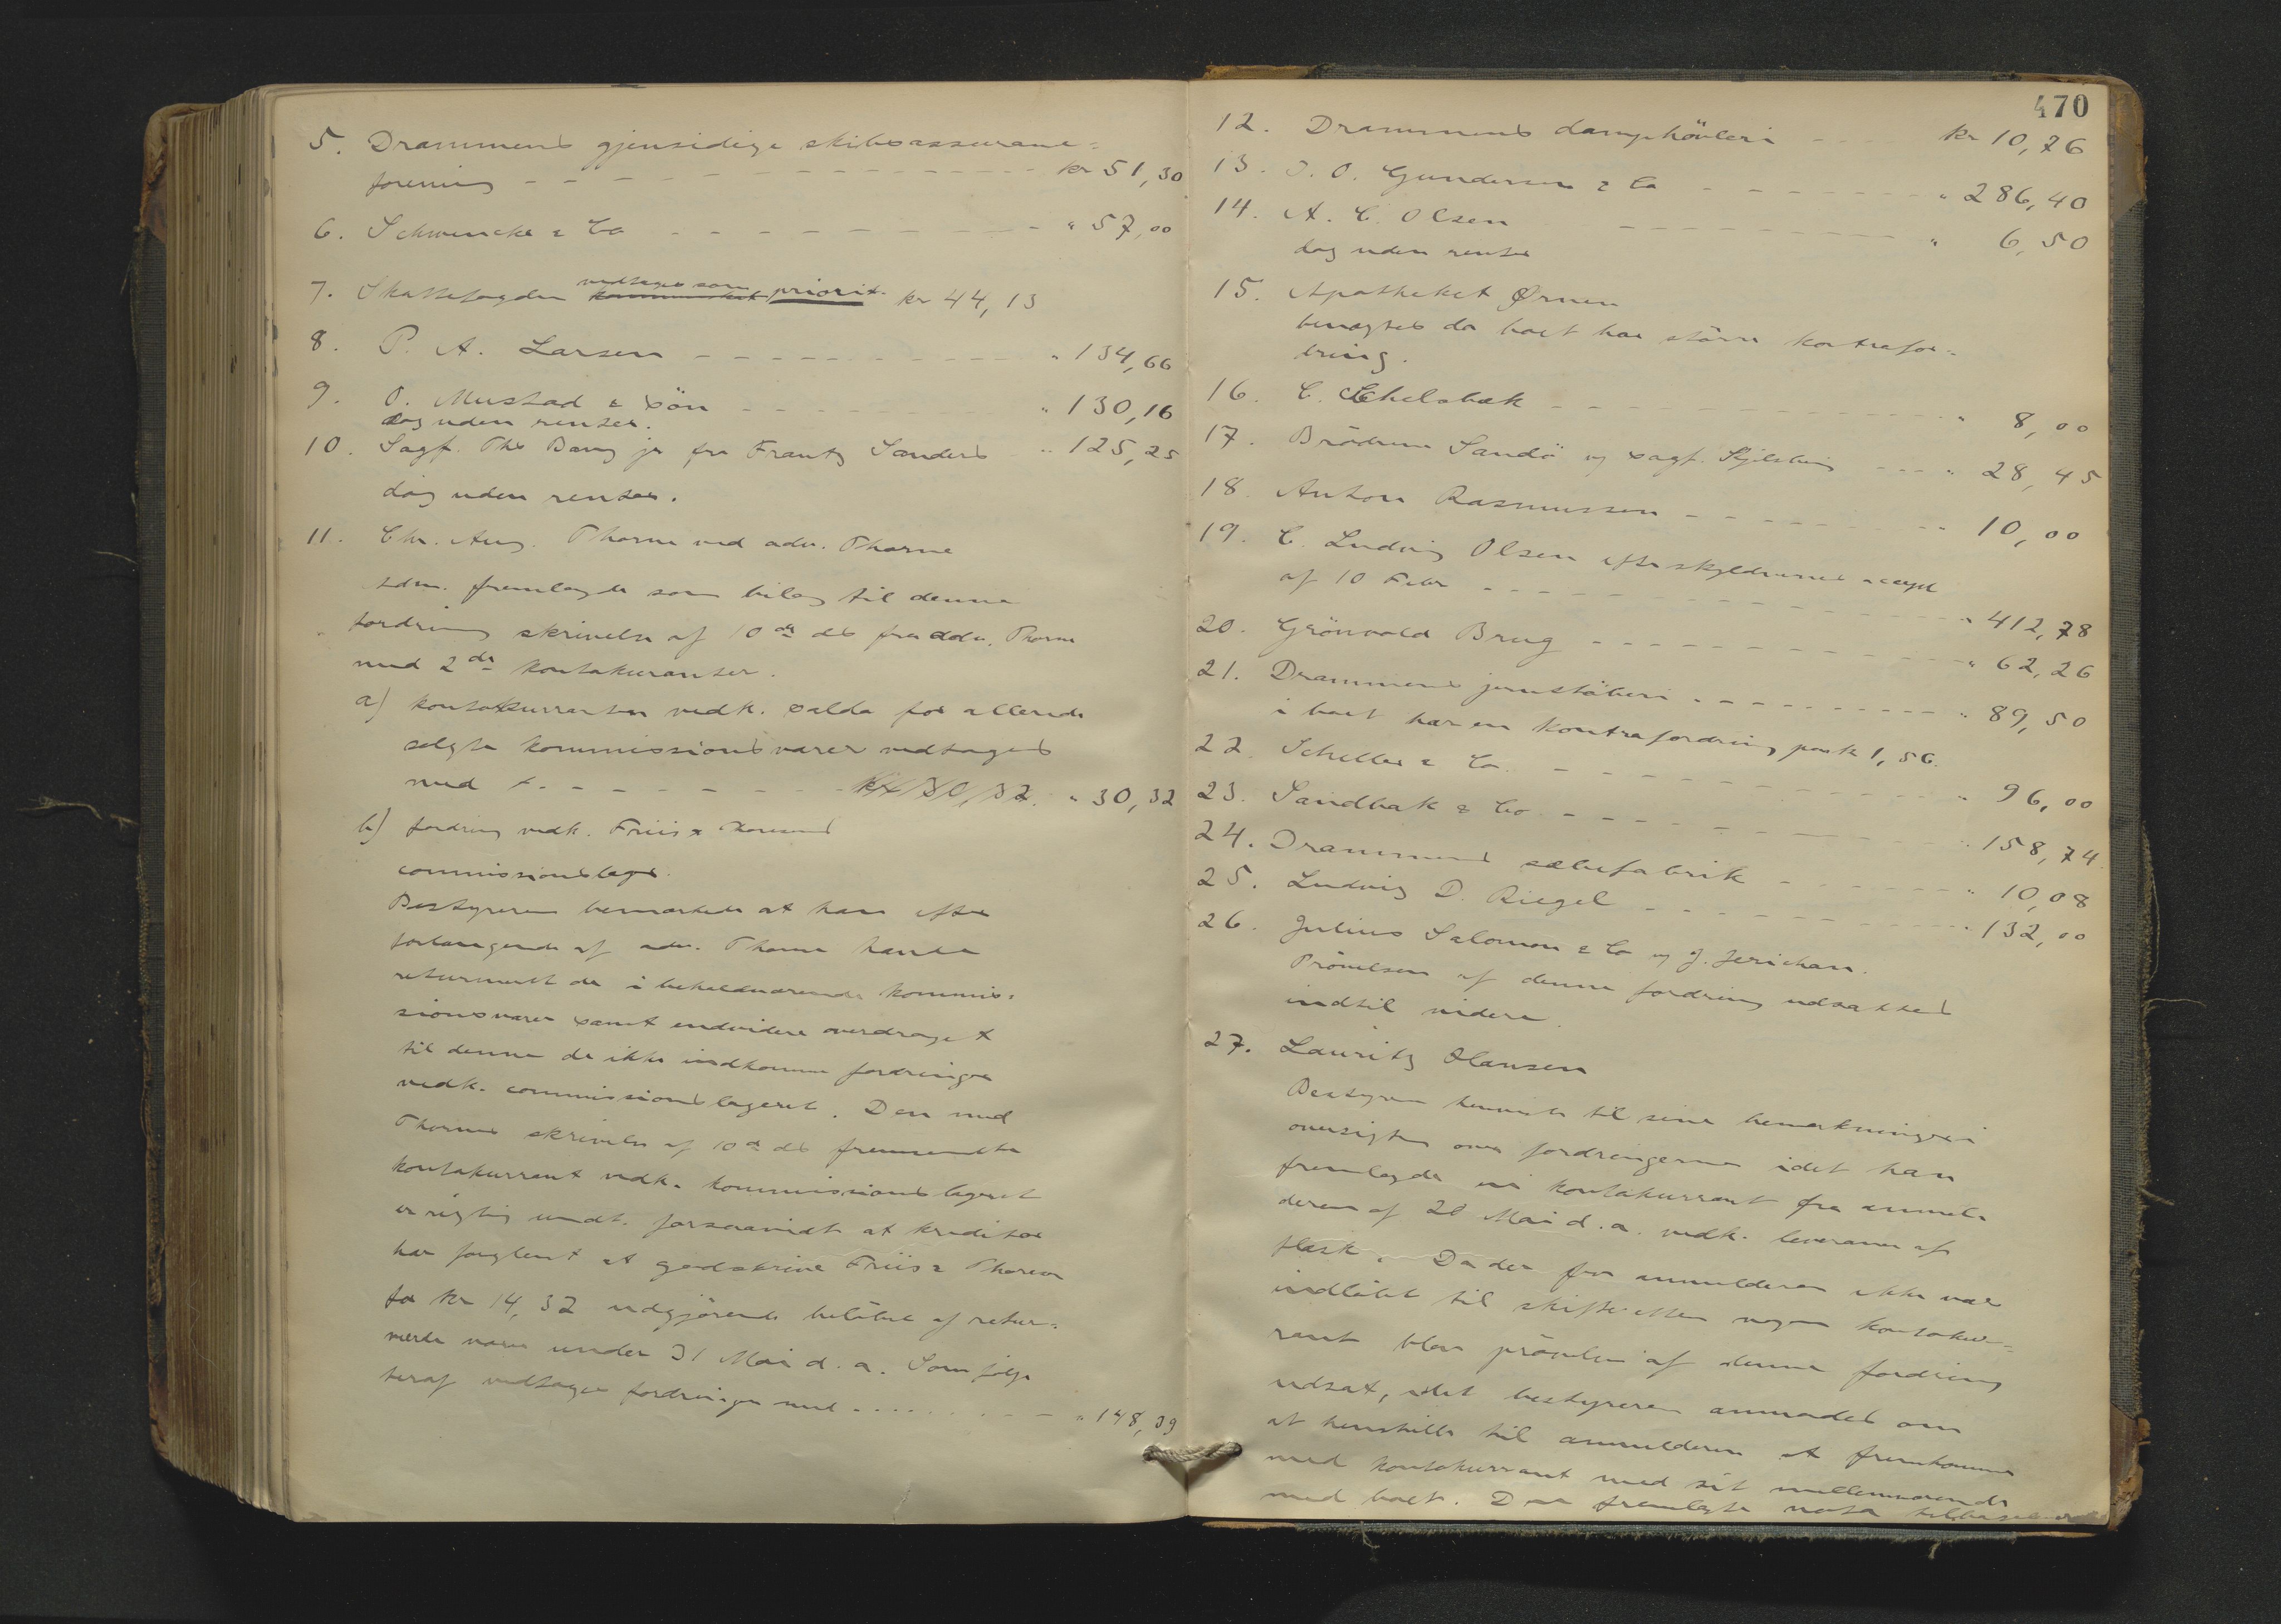 5. Drammens gjensidige skibsassurance=
forening - - - - - - - - - - kr 51,30
6. Schwencke & Co - - - - - - - - " 57,00
7. Skattefogden vedtages som priorit. kr 44,13
8. P. A. Larsen - - - - - - - - " 134,66
9. O. Mustad & Sön - - - - - - " 130,16
dog uden renter.
10. Sagf. Ths Bang jr for Frantz Sanders - " 125,25
dog uden renter.
11. Chr. Aug. Thorne ved adv. Thorne
sdm. fremlagde som bilag til denne
fordring skrivelse af 10de ds fra adv. Thorne
med 2de kontokuranter.
a) kontokurranten vedk. saldo for allerede
solgte kommissionsvarer vedtages
med - - - - - - - kr 30,32 " 30,32
b) fordring vedk. Friis & Thoresens
commissionslager.
Bestyreren bemærkede at han efter
forlangende af adv. Thorne havde
returneret de i beholdværende kommis=
sionsvarer samt endvidere overdraget
til denne de ikke indkomne fordringer
vedk. commissionslageret. Den med
Thornes skrivelse af 10de ds fremsendte
kontokurrant vedk. kommissionslageret
er rigtig undt. forsaavidt at kreditor
har forglemt at godskrive Friis & Thoresen
for kr 14,32 udgjörende belöbet af retur=
nerte varer under 31 Mai d. a. Som fölge
heraf vedtages fordringen med - - - - " 148,39
470
12. Drammens damphövleri - - - kr 10,76
13. J. O. Gundersen & Co - - - - - - " 286,40
14. A. C. Olsen - - - - - - - - " 6,50
dog uden renter
15. Apotheket Ørnen
benegtes da boet har större kontrafor=
dring.
16. C. Ekelsbæk - - - - - - - - " 8,00
17. Brödrene Sandö og sagf. - - - " 28,45
18. Anton Rasmussen - - - - - - " 10,00
19. C. Ludvig Olsen efter skyldnerens accept
af 10 Febr - - - - - - - - " 412,78
20. Grönvold Brug - - - - - - - " 62,26
21. Drammens jernstöberi - - - - - " 89,50
i boet har en kontrafordring paa kr 1,56.
22. Scheller & Co. - - - - - - - " 96,00
23. Sandbak & Co - - - - - - - " 158,74
24. Drammens sæbefabrik - - - - - " 10,08
25. Ludvig D. Riegel - - - - - - " 132,00
26. Julius Salomon & Co og J. Jerichau.
Prövelsen af denne fordring udsættes
indtil videre.
27. Lauritz Hansen
Bestyreren henviste til sine bemærkninger i
oversigten over fordringerne idet han
fremlagde en kontokurrant fra anmel=
deren af 20 Mai d. a. vedk. leverance af
flæsk. Da der fra anmelderen ikke var
indlöbet til skifteretten nogen kontokur=
rant blev prövelsen af denne fordring
udsat, idet bestyreren anmodes om
at henstille til anmelderen at fremkomme
med kontokurrant med sit mellemværende
med boet. Den fremlagte nota